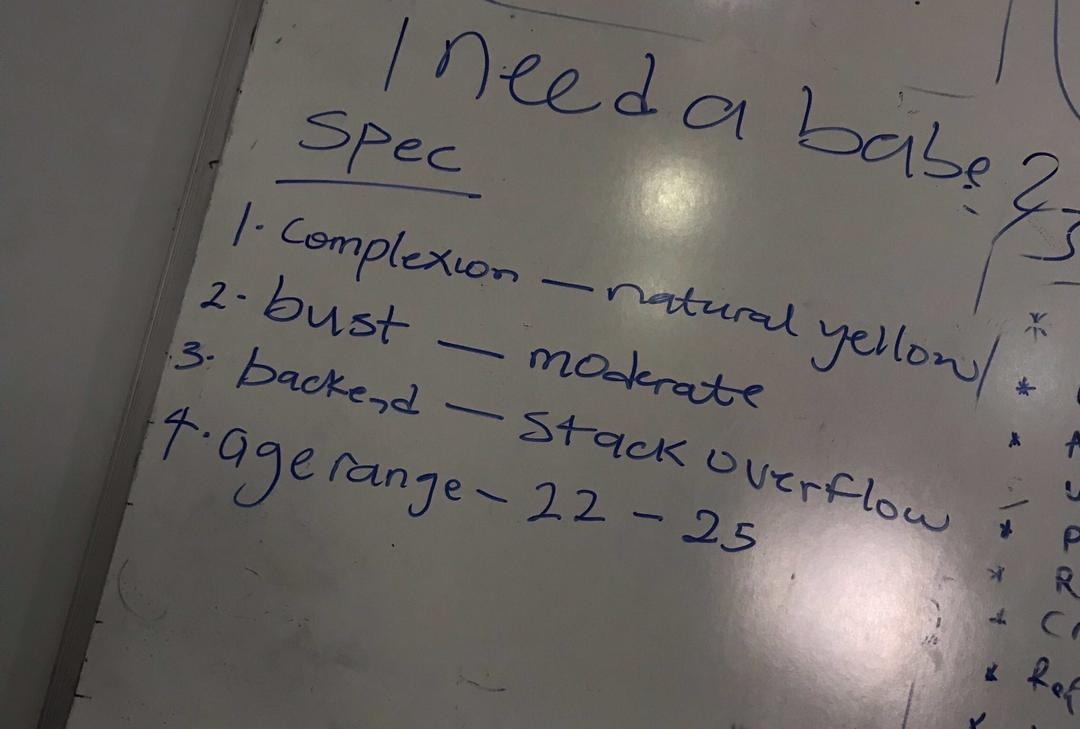 I need a babe
Spec
1. Complexion — natural yellow
2. bust — moderate
3. backend — stack overflow
4. age range - 22 - 25
Ref